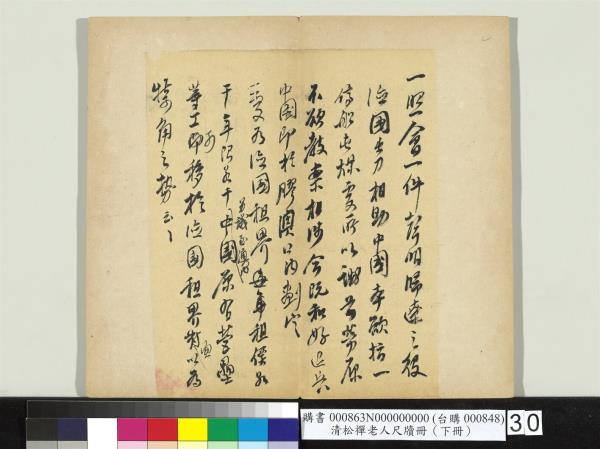 一照會一件聲明歸遼之役
德國出力相助中國本欲指一
停船屯煤處所以酬前勞原
不欲教案相涉今既和好退兵
中國即於膠澳口內劃定
一段為德國租界每年租價若
干年限若干中國原有營壘
等工亦即移於德國租界對面以為
犄角之勢云云
購書 000863N000000000 (台購 000848)
清松禪老人尺牘冊（下冊）
30